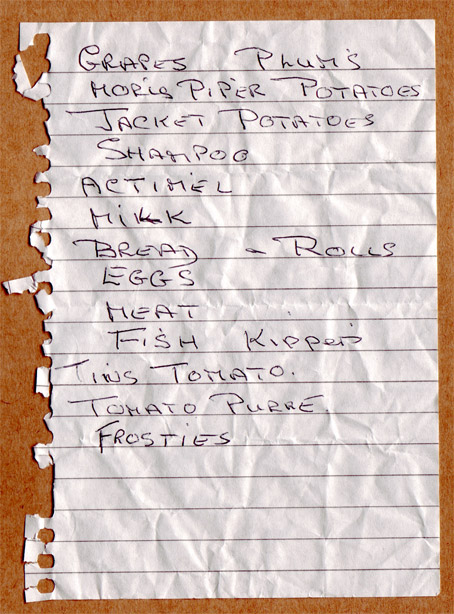 GRAPES PLUM'S
MORIS PIPER POTATOES
JACKET POTATOES
SHAMPOO
ACTIMEL
MILK
BREAD - ROLLS
EGGS
MEAT
FISH KIPPERS
TINS TOMATO.
TOMATO PURRE.
FROSTIES